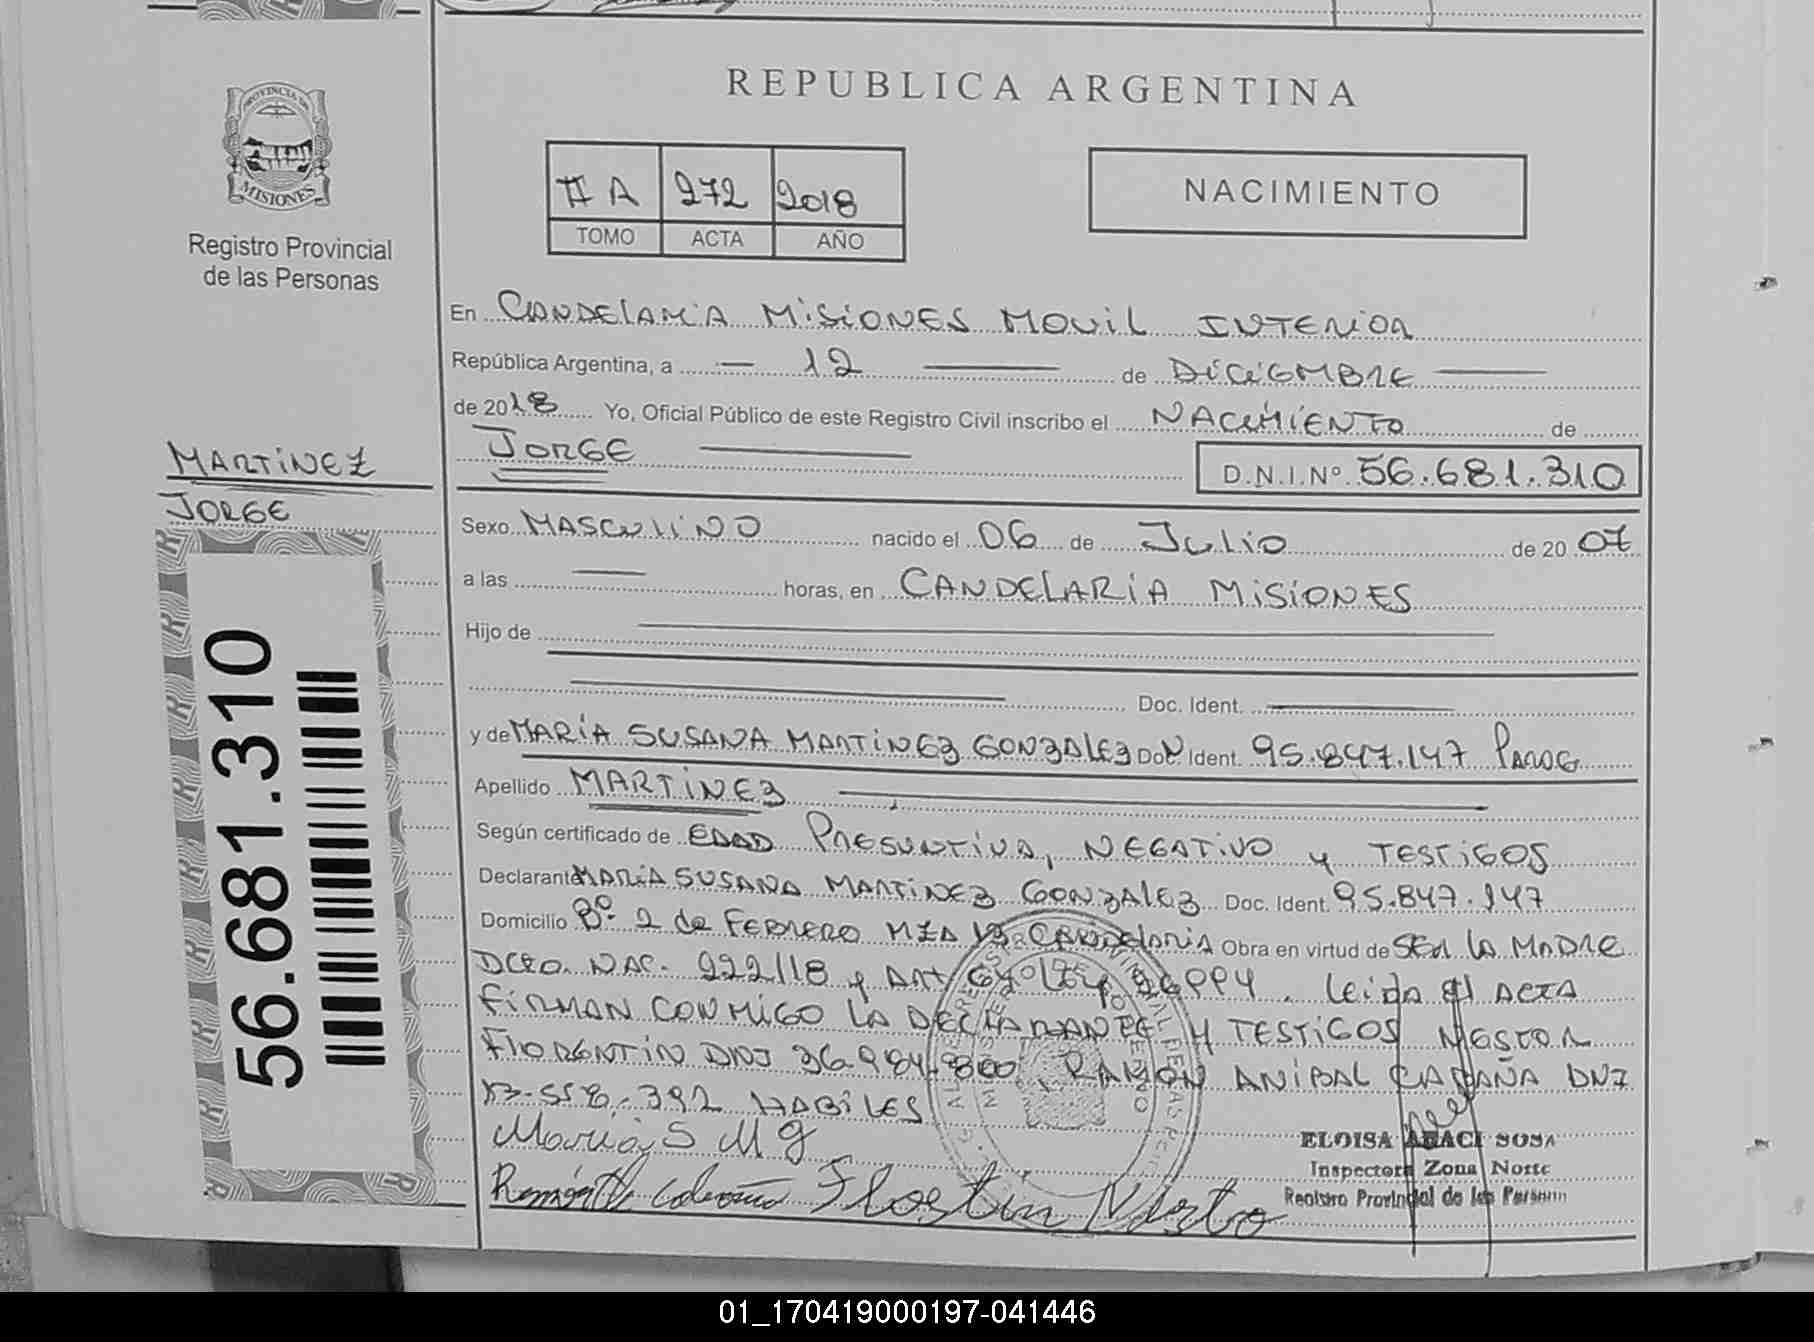 REPUBLICA ARGENTINA
PROVINCIA DE
MISIONES
Registro Provincial
de las Personas
II A 272 2018
TOMO ACTA AÑO
NACIMIENTO
En CANDELARIA MISIONES MOVIL INTERIOR
República Argentina, a — 12 — de DICIEMBRE —
de 2018 Yo, Oficial Público de este Registro Civil inscribo el NACIMIENTO de
JORGE — D.N.I.Nº 56.681.310
MARTINEZ
JORGE
56.681.310
Sexo MASCULINO nacido el 06 de JULIO de 2007
a las — horas, en CANDELARIA MISIONES
Hijo de —
— Doc. Ident. —
y de MARÍA SUSANA MARTINEZ GONZALEZ Doc. Ident. 95.847.147
Apellido MARTINEZ —
Según certificado de EDAD PRESUNTIVA, NEGATIVO y TESTIGOS
Declarante MARIA SUSANA MARTINEZ GONZALEZ Doc. Ident. 95.847.147
Domicilio Bº 2 de FEBRERO MZA CANDELARIA Obra en virtud de SER LA MADRE
DCTO. NAC. 222/18 y ART LEY. Leida el ACTA
FIRMAN CONMIGO LA DECLARANTE Y TESTIGOS NESTOR
FLORENTIN DNI 36.984.800 RAMÓN ANIBAL DNI
392 HABILES
Maria S M g
ELOISA ARACI SOSA
Inspectora Zona Norte
Registro Provincial de las Personas
01_170419000197-041446